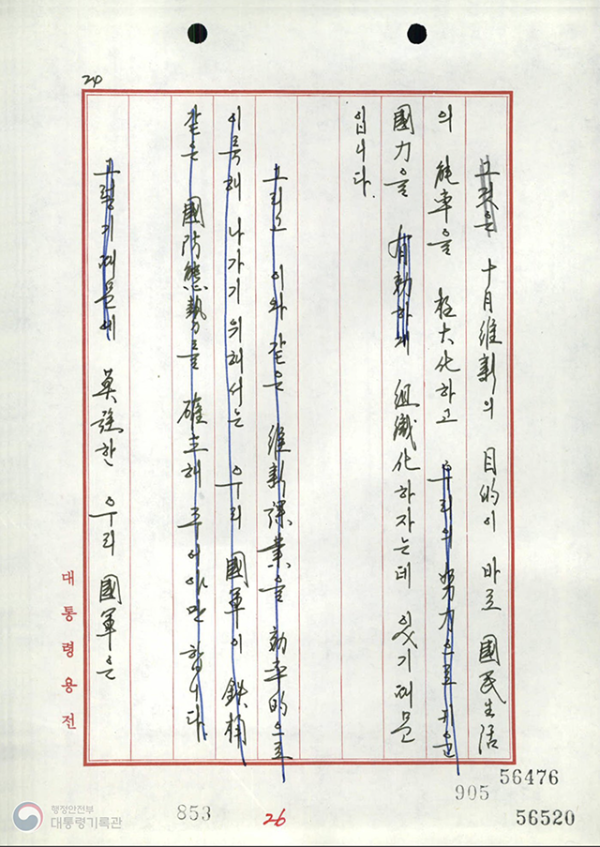 24
그것은 十月維新의 目的이 바로 國民生活
의 能率을 極大化하고 우리의 努力으로 키운
國力을 有効하게 組織化하자는데 있기때문
입니다.
그리고 이와 같은 維新課業을 効率的으로
이룩해 나가기 위해서는 우리 國軍이 鉄桶
같은 國防態勢를 確立해 주어야만 합니다.
그렇기 때문에 莫强한 우리 國軍은
대통령용전
56476
905
853
26
56520
행정안전부
대통령기록관